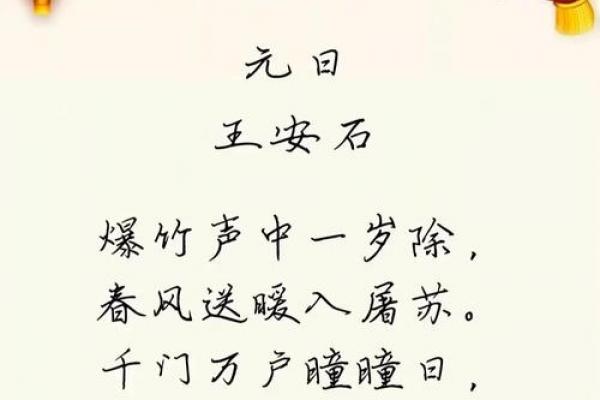 元日
王安石
爆竹声中一岁除，
春风送暖入屠苏。
千门万户瞳瞳日，